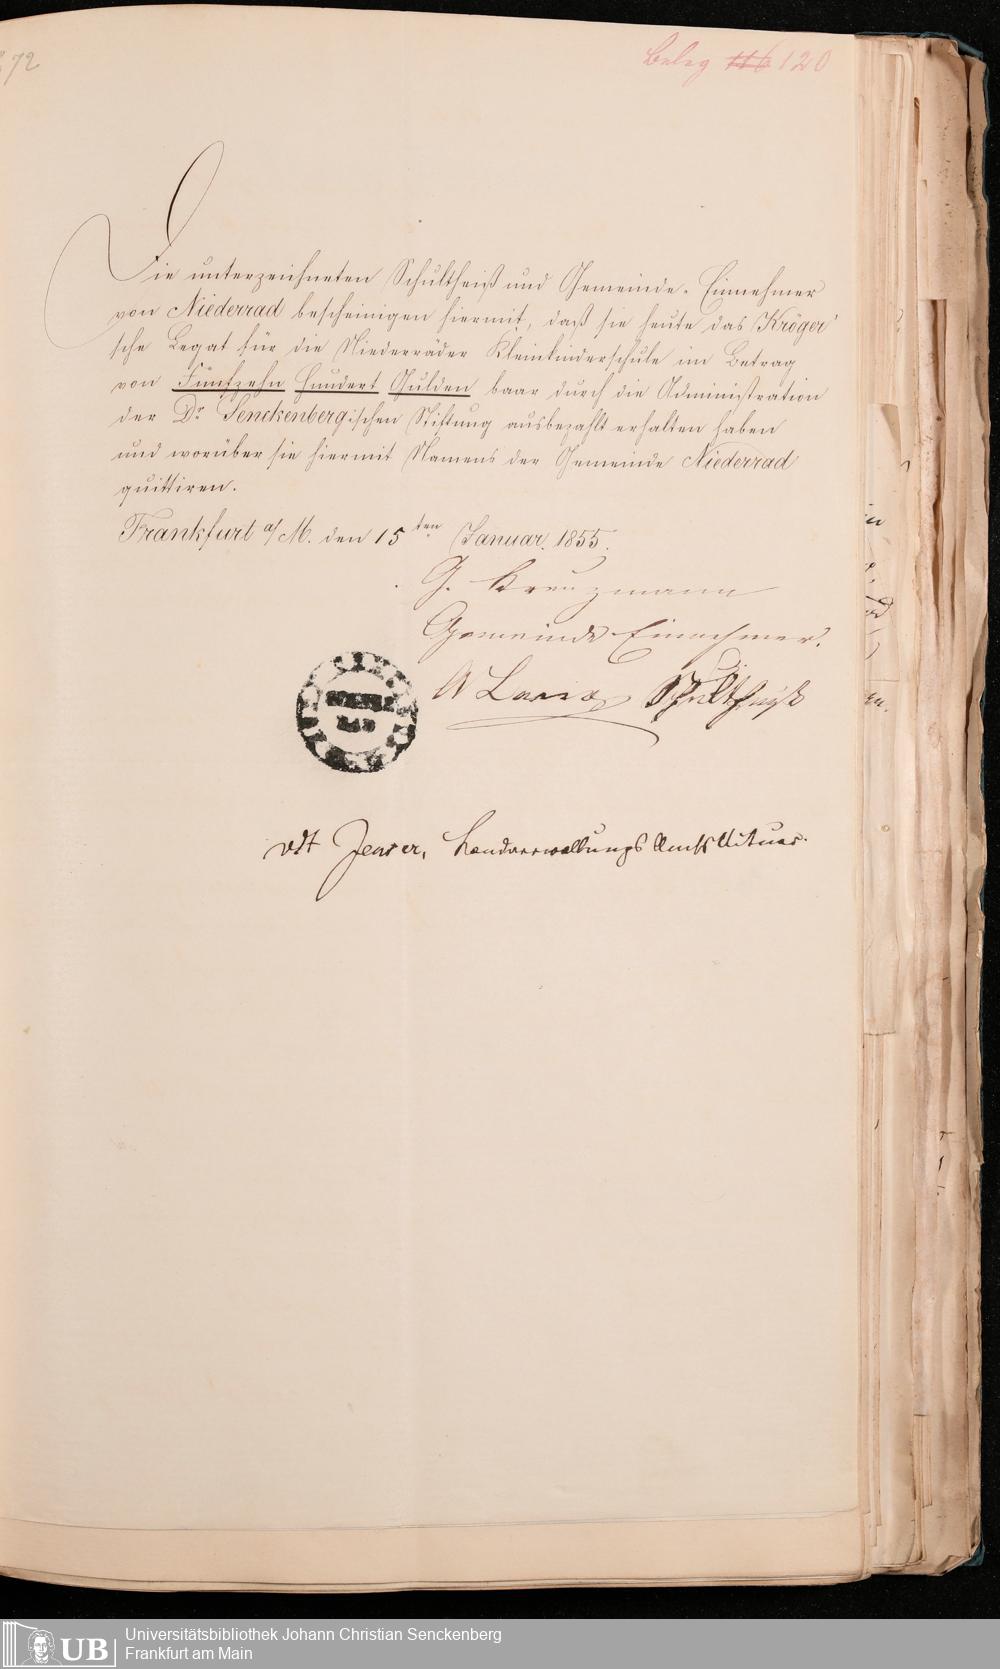 72
Beleg 116 120
Die unterzeichneten Schultheiß und Gemeinde-Einnehmer
von Niederrad bescheinigen hiermit, daß sie heute das Kröger'
sche Legat für die Niederräder Kleinkinderschule im Betrag
von Fünfzehn Hundert Gulden baar durch die Administration
der Dr Senckenberg'schen Stiftung ausbezahlt erhalten haben
und worüber sie hiermit Namens der Gemeinde Niederrad
quittiren.
Frankfurt a/M. den 15ten Januar. 1855.
G. Kreuzmann
Gemeinde Einnehmer.
Schultheiß
vdt Landverwaltungs Amts Actuar.
UB
Universitätsbibliothek Johann Christian Senckenberg
Frankfurt am Main